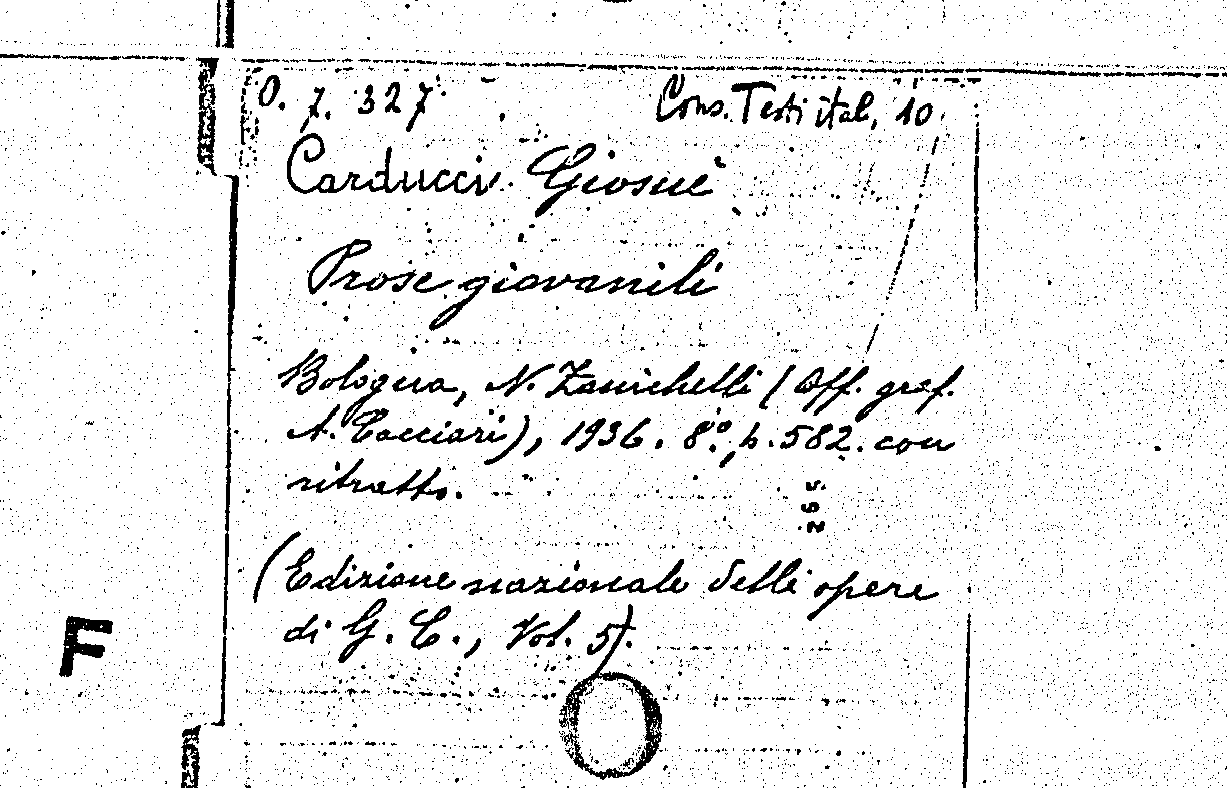 O. 7. 327. Cons. Testi ital. 10
Carducci Giosuè
Prose giovanili
Bologna, N. Zanichelli (Off. graf.
A. Cacciari), 1936. 8°, p. 582. con
ritratto.
(Edizione nazionale delle opere
di G. C., Vol. 5).
F